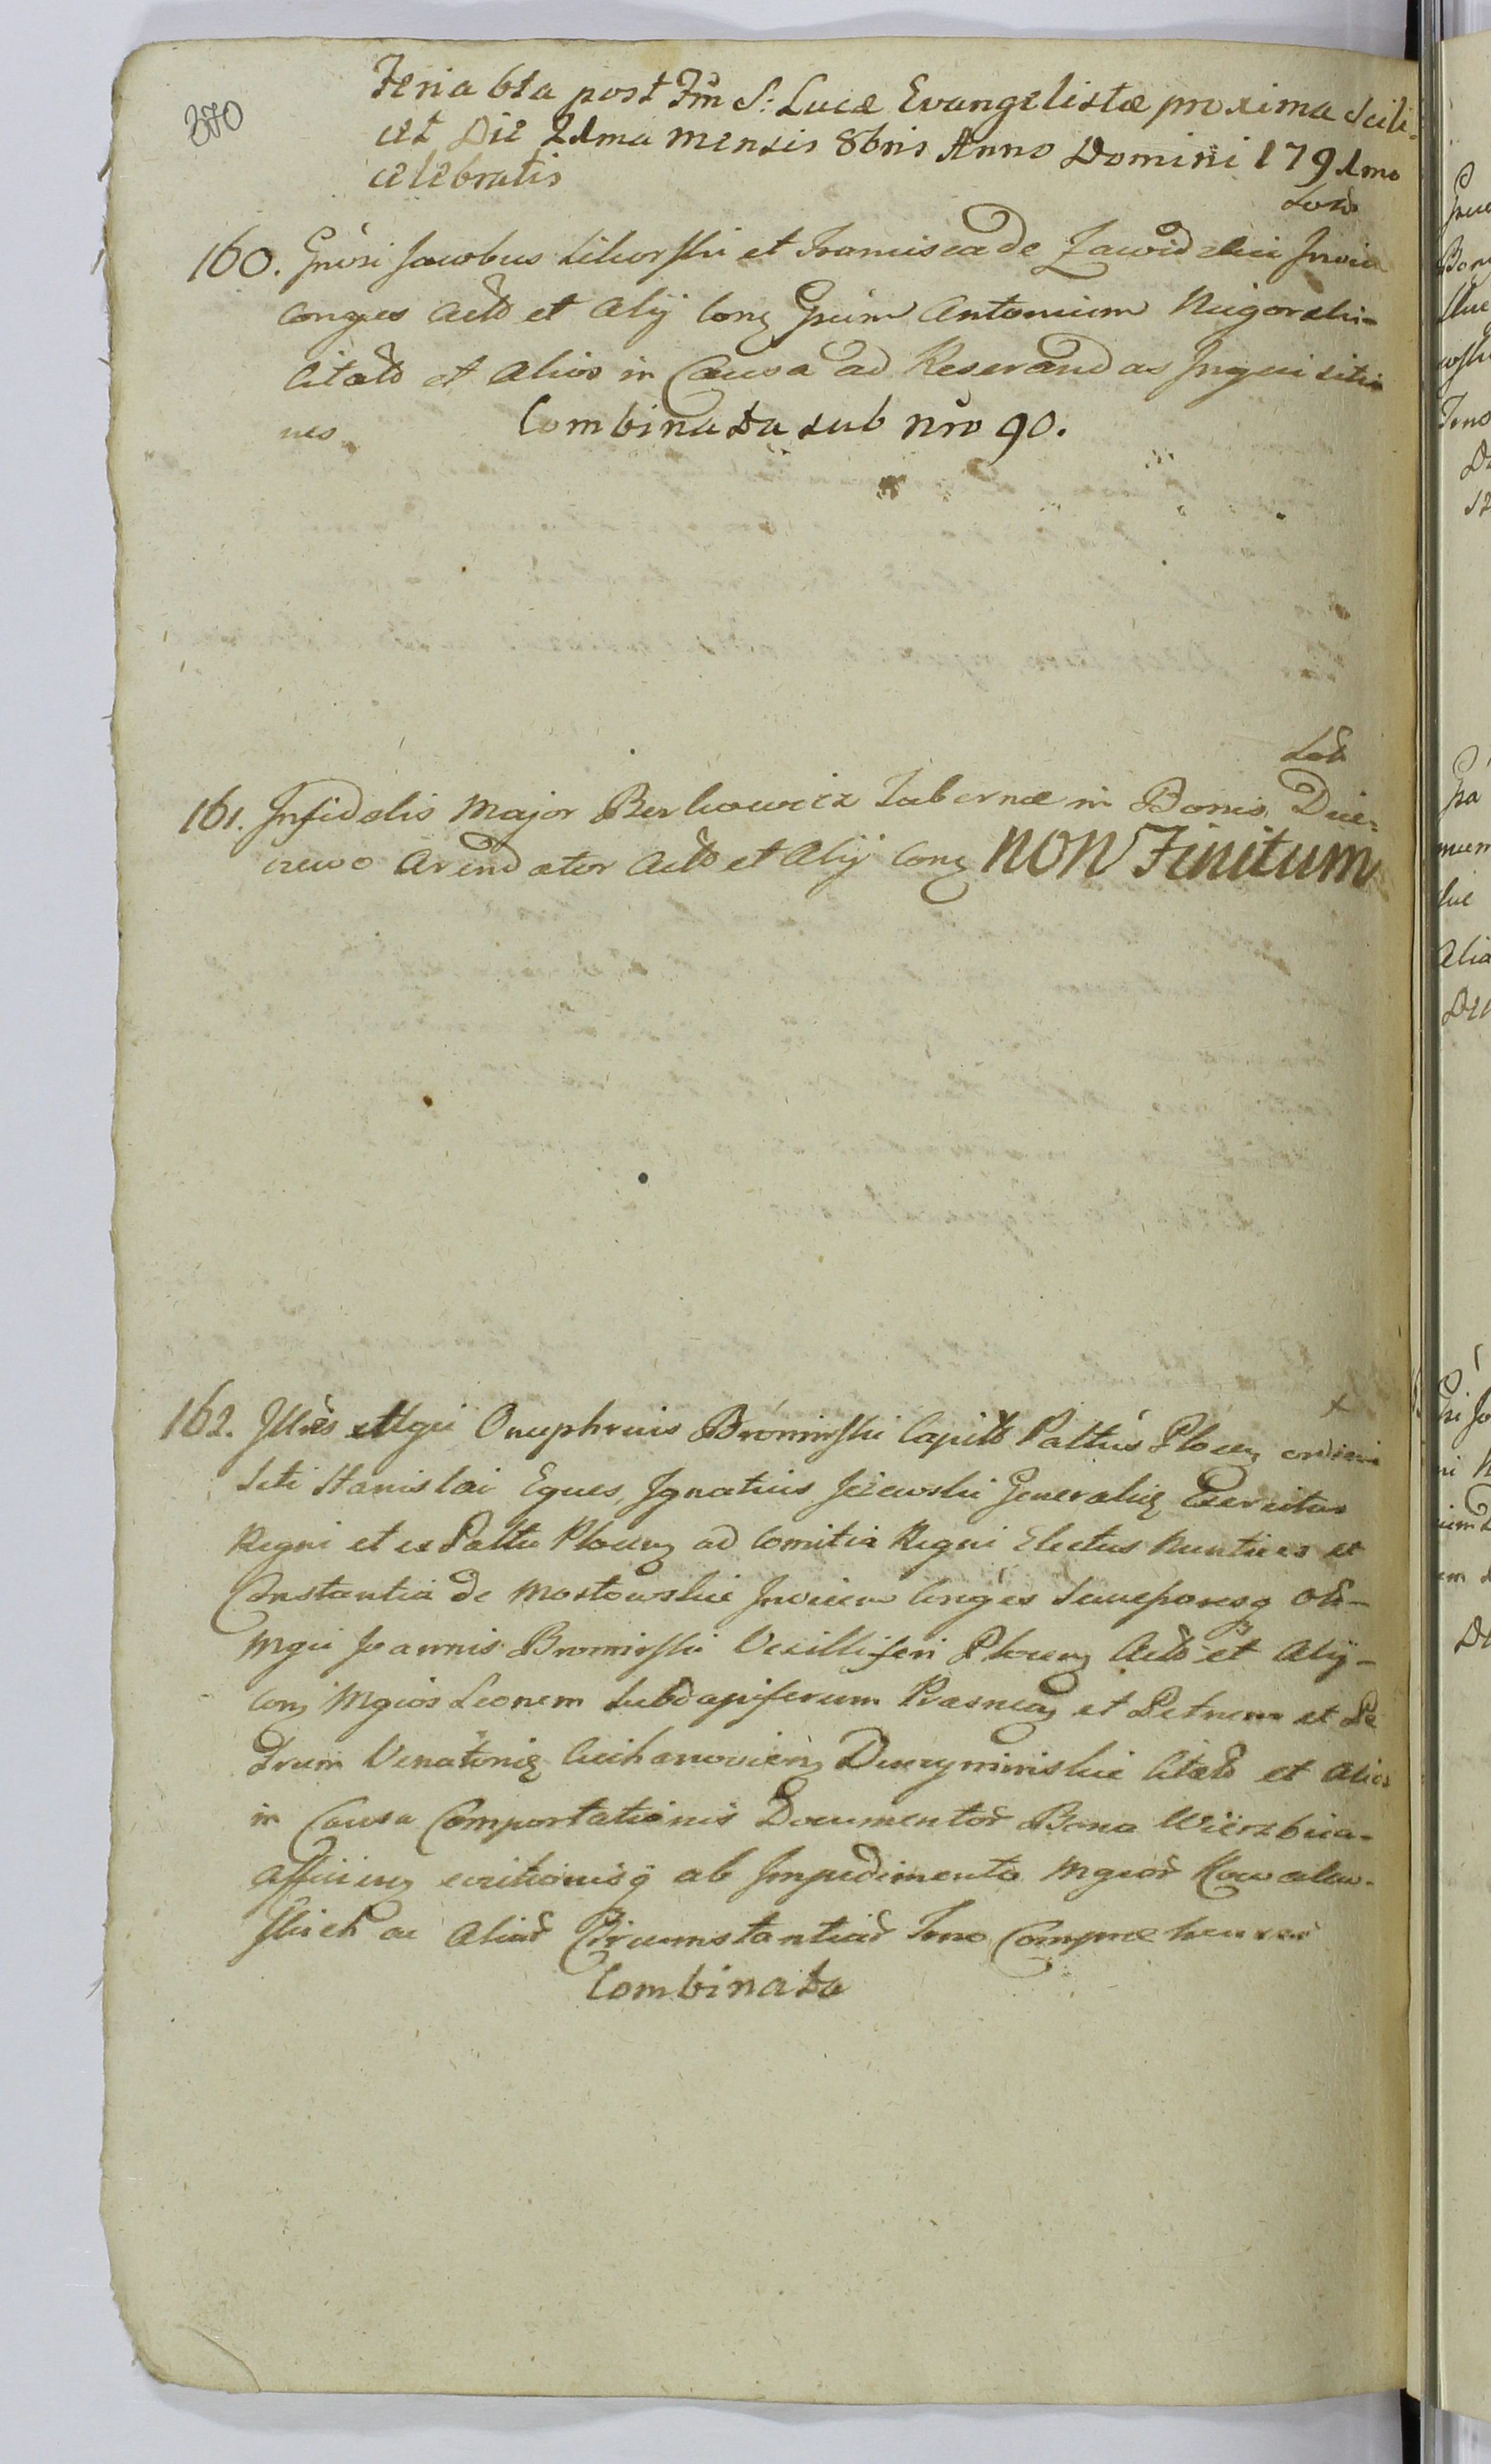 370
Feria 6ta post Fm S: Lucæ Evangelistæ proxima Scili-
cet Die 21ma mensis 8bris Anno Domini 1791mo
celebratis
160. Gnõsi Jacobus Sikorski et Francisca de Zawidzkie Invic
Conges Actõ et Alij Conq Gnum Antonium
Citatõ et Alios in Causa ad Reserandas Inquisitio
nes
Combinata sub nro 90.
161. Infidelis Major Berkowicz Tabernæ in Bonis Dzie-
Arendator Actõ et Alij Conq NON Finitum
162. Illres Mgci Onuphrius Bromirski Capitõ Paltus Plocen ordini
Scti Stanislai Eques, Ignatius Jezewski Generaliq Exercitus
Regni et ex Paltu Plocen ad Comitia Regni Electus Nuntius et
Constantia de Mostowskie Invicem Conges Succesoresq Olo-
Mgci Joannis Bromirski Vexilliferi Plocen Actõ et Alij-
Conq Mgcos Leonem Subdapiferum Prasneq et Petrum et Pe
trum Venatoriq Ciechanovien Duczyminskie Citatõ et Alios
in Causa Comportationis Documentor Bona Wierzbica-
afficieñ evictionisq ab Impedimento Mgcor Kowalew-
skich ac Aliar Circumstantiar Tmno Compræhensar
Combinata